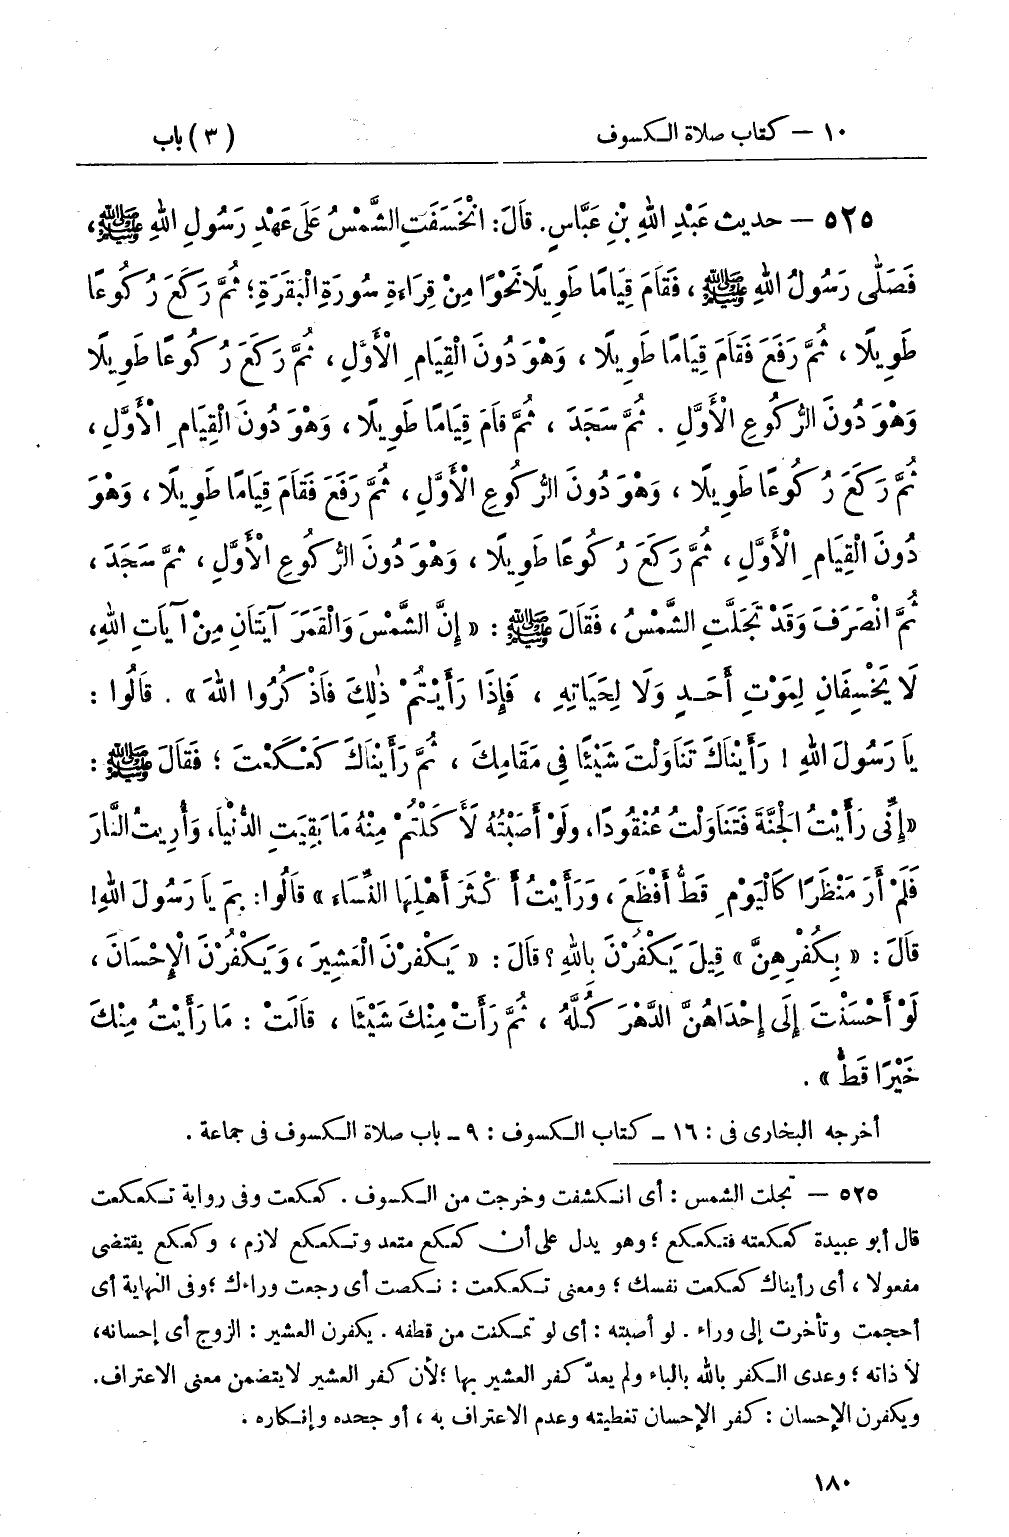 ١٠ – كتاب صلاة الكسوف
(٣) باب
٥٢٥ – حديث عَبْدِ اللهِ بْنِ عَبَّاسٍ. قَالَ: انْخَسَفَتِ الشَّمْسُ عَلَى عَهْدِ رَسُولِ اللهِ ﷺ،
فَصَلَّى رَسُولُ اللهِ ﷺ، فَقَامَ قِيَامًا طَوِيلًا نَحْوًا مِنْ قِرَاءَةِ سُورَةِ الْبَقَرَةِ؛ ثُمَّ رَكَعَ رُكُوعًا
طَوِيلًا، ثُمَّ رَفَعَ فَقَامَ قِيَامًا طَوِيلًا، وَهْوَ دُونَ الْقِيَامِ الْأَوَّلِ، ثُمَّ رَكَعَ رُكُوعًا طَوِيلًا
وَهْوَ دُونَ الرُّكُوعِ الْأَوَّلِ. ثُمَّ سَجَدَ، ثُمَّ قَامَ قِيَامًا طَوِيلًا، وَهْوَ دُونَ الْقِيَامِ الْأَوَّلِ،
ثُمَّ رَكَعَ رُكُوعًا طَوِيلًا، وَهْوَ دُونَ الرُّكُوعِ الْأَوَّلِ، ثُمَّ رَفَعَ فَقَامَ قِيَامًا طَوِيلًا، وَهْوَ
دُونَ الْقِيَامِ الْأَوَّلِ، ثُمَّ رَكَعَ رُكُوعًا طَوِيلًا، وَهْوَ دُونَ الرُّكُوعِ الْأَوَّلِ، ثمَّ سَجَدَ،
ثُمَّ انْصَرَفَ وَقَدْ تَجَلَّتِ الشَّمْسُ، فَقَالَ ﷺ: « إِنَّ الشَّمْسَ وَالْقَمَرَ آيَتَانِ مِنْ آيَاتِ اللهِ،
لَا يَخْسِفَانِ لِمَوْتِ أَحَدٍ وَلَا لِحَيَاتِهِ، فَإِذَا رَأَيْتُمْ ذٰلِكَ فَاذْكُرُوا اللهَ ». قَالُوا:
يَا رَسُولَ اللهِ! رَأَيْنَاكَ تَنَاوَلْتَ شَيْئًا فِى مَقَامِكَ، ثُمَّ رَأَيْنَاكَ كَعْكَعْتَ؛ فَقَالَ ﷺ:
«إِنِّى رَأَيْتُ الجَنَّةَ فَتَنَاوَلْتُ عُنْقُودًا، ولَوْ أَصَبْتُهُ لَأَكَلْتُمْ مِنْهُ مَا بَقِيَتِ الدُّنْيَا، وَأُرِيتُ النَّارَ
فَلَمْ أَرَ مَنْظَرًا كَالْيَوْمِ قَطُّ أَفْظَعَ، وَرَأَيْتُ أَكْثَرَ أَهْلِهَا النِّسَاء » قَالُوا: بِمَ يَا رَسُولَ اللهِ!
قَالَ: « بِكُفْرِهِنَّ » قِيلَ يَكْفُرْنَ بِاللهِ؟ قَالَ: « يَكْفرْنَ الْعَشِيرَ، وَيَكْفُرْنَ الْإِحْسَانَ،
لَوْ أَحْسَنْتَ إِلَى إِحْدَاهُنَّ الدَّهْرَ كُلَّهُ، ثُمَّ رَأَتْ مِنْكَ شَيْئًا، قَالَتْ: مَا رَأَيْتُ مِنْكَ
خَيْرًا قَطُّ ».
أخرجه البخارى فى: ١٦ ـ كتاب الكسوف: ٩ ـ باب صلاة الكسوف فى جماعة.
٥٢٥ – تجلت الشمس: أى انكشفت وخرجت من الكسوف. كعكعت وفى رواية تكعكعت
قال أبو عبيدة كعكعته فتكعكع؛ وهو يدل على أن كعكع متعد وتكعكع لازم، وكعكع يقتضى
مفعولا، أى رأيناك كعكعت نفسك؛ ومعنى تكعكعت: نكصت أى رجعت وراءك؛ وفى النهاية أى
أحجمت وتأخرت إلى وراء. لو أصبته: أى لو تمكنت من قطفه. يكفرن العشير: الزوج أى إحسانه،
لا ذاته؛ وعدى الكفر بالله بالباء ولم يعدّ كفر العشير بها؛ لأن كفر العشير لا يتضمن معنى الاعتراف.
ويكفرن الإحسان: كفر الإحسان تغطيته وعدم الاعتراف به، أو جحده وإنكاره.
١٨٠